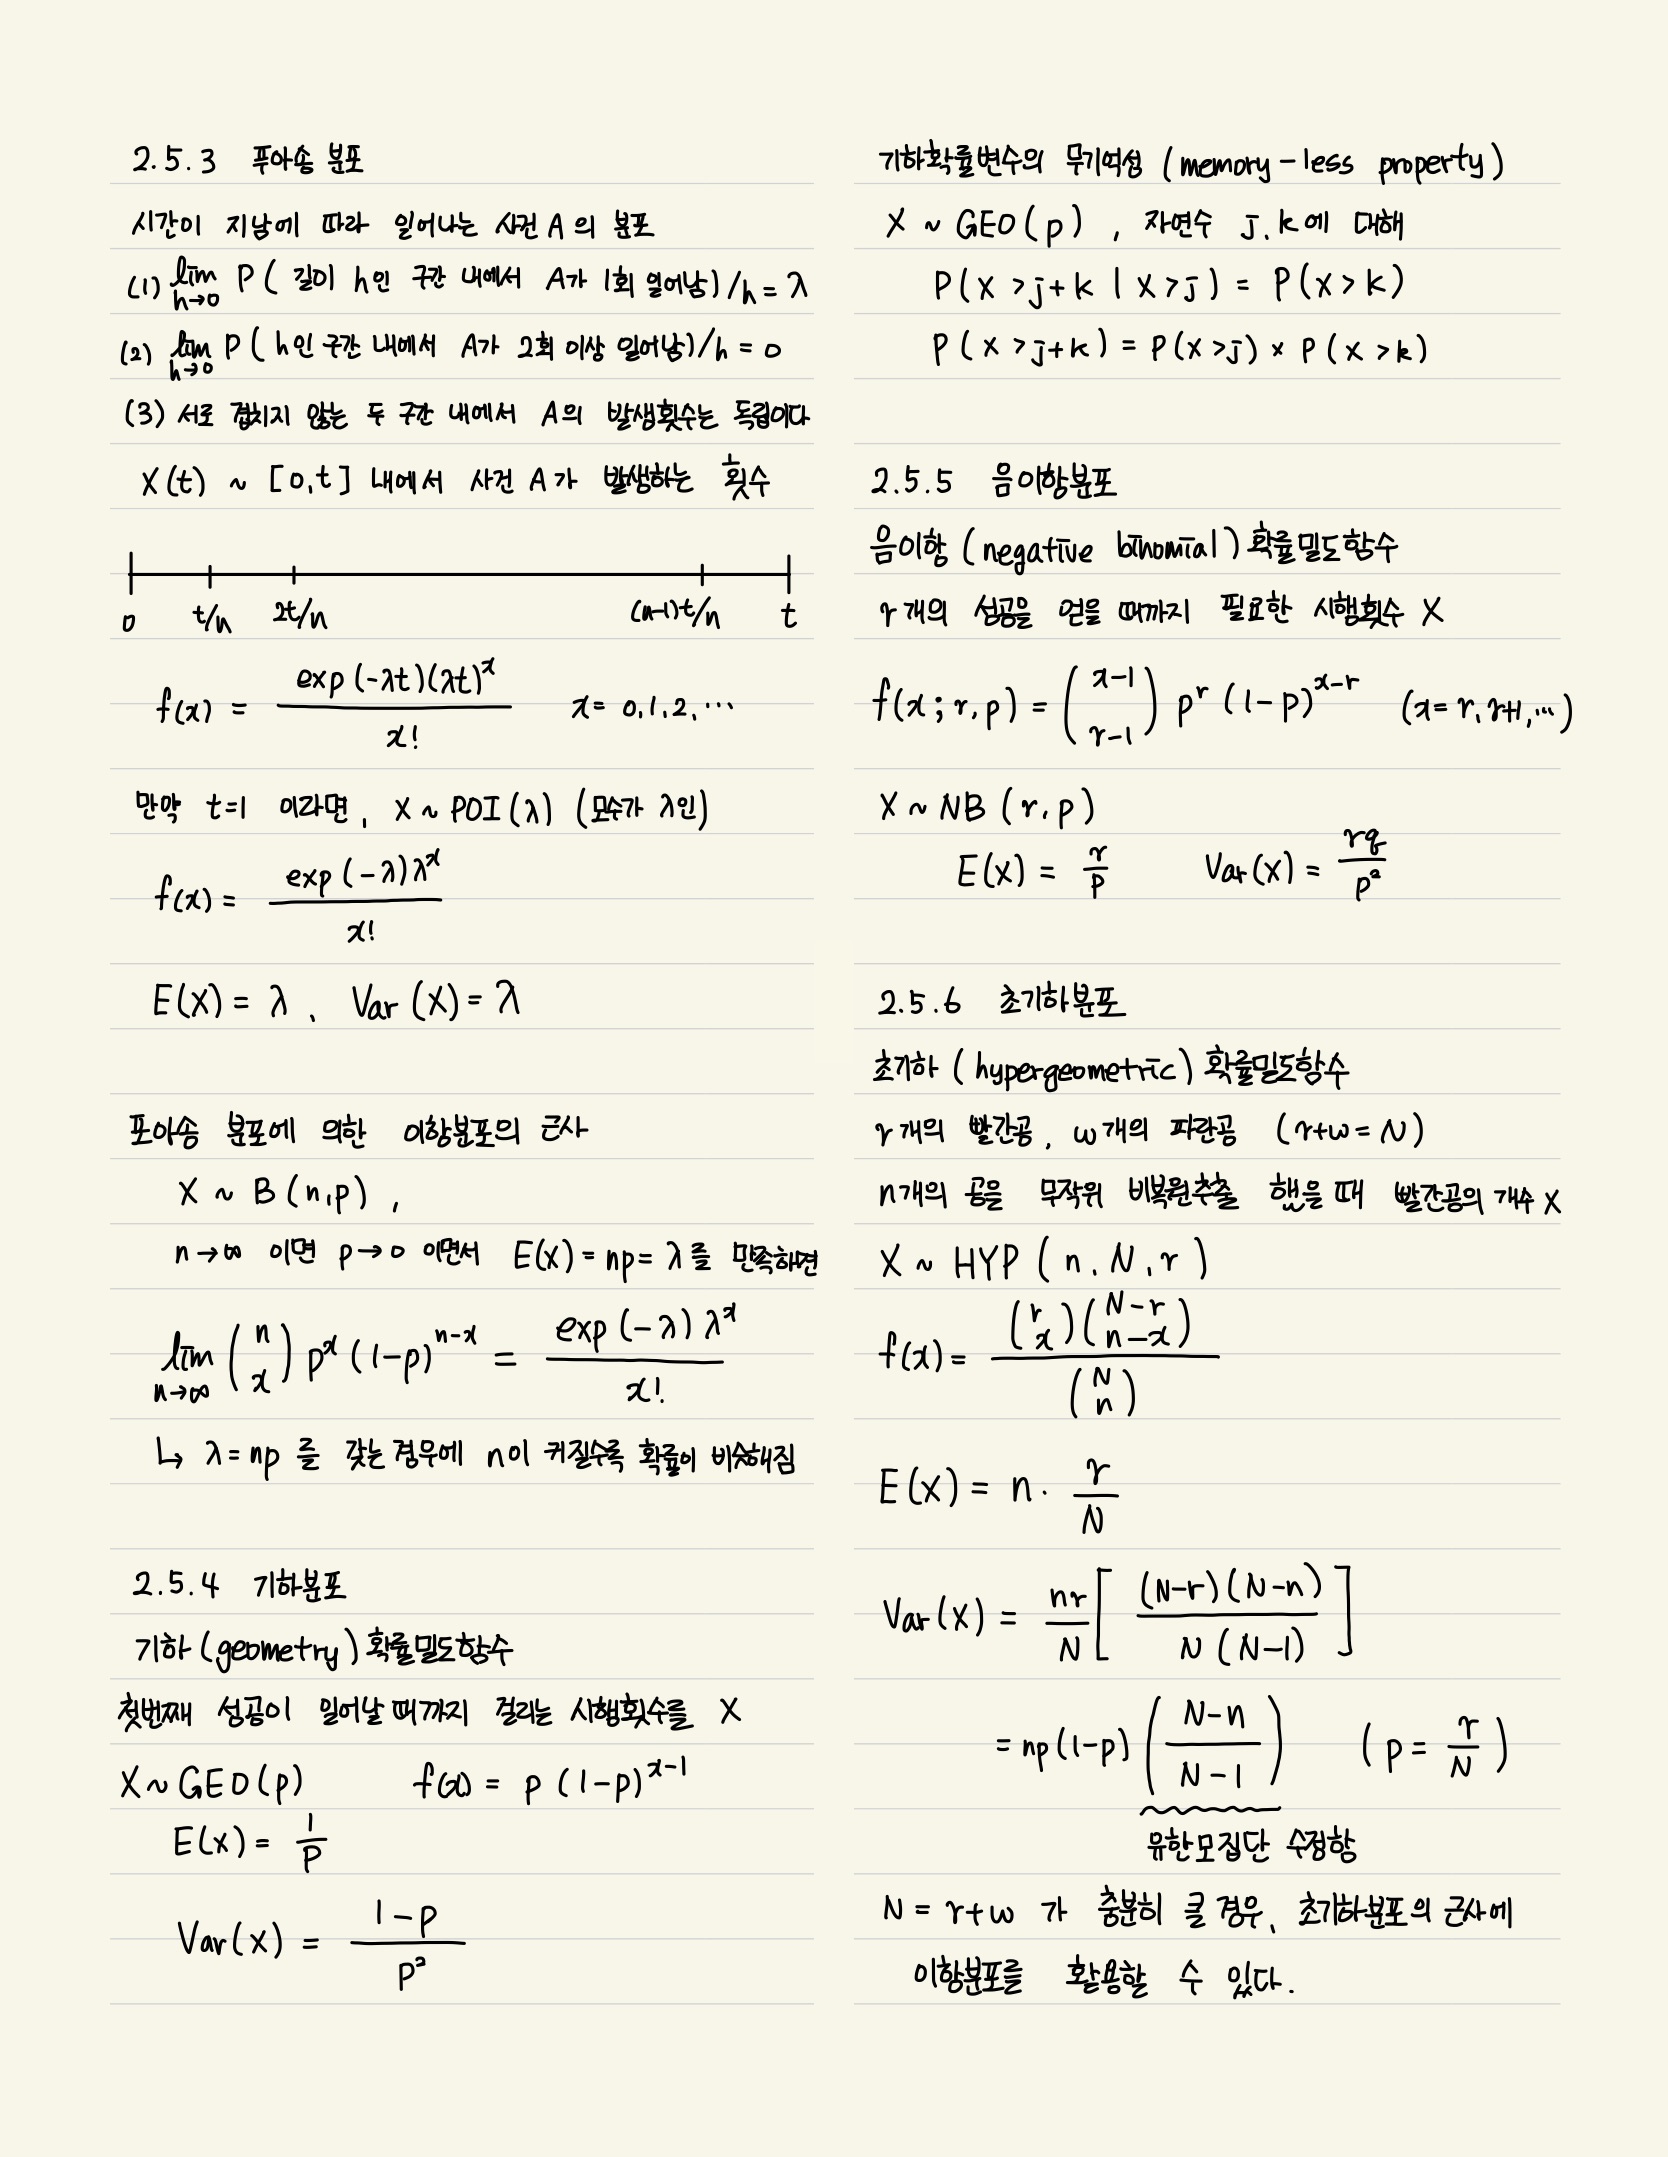 2.5.3 푸아송 분포
시간이 지남에 따라 일어나는 사건 A의 분포
(1) lim h→0 P( 길이 h인 구간 내에서 A가 1회 일어남)/h = λ
(2) lim h→0 P( h인 구간 내에서 A가 2회 이상 일어남)/h = 0
(3) 서로 겹치지 않는 두 구간 내에서 A의 발생횟수는 독립이다
X(t) ~ [0,t] 내에서 사건 A가 발생하는 횟수
0 t/n 2t/n (n-1)t/n t
f(x) = exp(-λt)(λt)^x / x! x= 0,1,2,⋯
만약 t=1 이라면, X ~ POI(λ) (모수가 λ인)
f(x) = exp(-λ)λ^x / x!
E(X) = λ, Var(X) = λ
포아송 분포에 의한 이항분포의 근사
X ~ B(n,p),
n→∞ 이면 p→0 이면서 E(X) = np = λ를 만족하면
lim n→∞ (n x) p^x (1-p)^(n-x) = exp(-λ)λ^x / x!
↳ λ=np 를 갖는 경우에 n이 커질수록 확률이 비슷해짐
2.5.4 기하분포
기하(geometry) 확률밀도함수
첫번째 성공이 일어날 때까지 걸리는 시행횟수를 X
X~GEO(p) f(x) = p(1-p)^(x-1)
E(X) = 1/p
Var(X) = (1-p)/p²
기하확률변수의 무기여성 (memory-less property)
X ~ GEO(p), 자연수 j,k에 대해
P(X >j+k | X>j) = P(X > k)
P(X >j+k) = P(X >j) × P(X >k)
2.5.5 음이항분포
음이항 (negative binomial) 확률밀도함수
r개의 성공을 얻을 때까지 필요한 시행횟수 X
f(x; r, p) = (x-1 r-1) p^r (1-p)^(x-r) (x= r, r+1,⋯)
X ~ NB (r, p)
E(X) = r/p Var(X) = rq/p²
2.5.6 초기하분포
초기하 (hypergeometric) 확률밀도함수
r개의 빨간공, w개의 파란공 (r+w = N)
n개의 공을 무작위 비복원추출 했을 때 빨간공의 개수 X
X ~ HYP (n, N, r)
f(x) = (r x)(N-r n-x) / (N n)
E(X) = n · r/N
Var(X) = nr/N [ (N-r)(N-n) / N(N-1) ]
= np(1-p) ( N-n / N-1 ) ( p = r/N )
유한모집단 수정항
N = r+w 가 충분히 클 경우, 초기하분포의 근사에
이항분포를 활용할 수 있다.